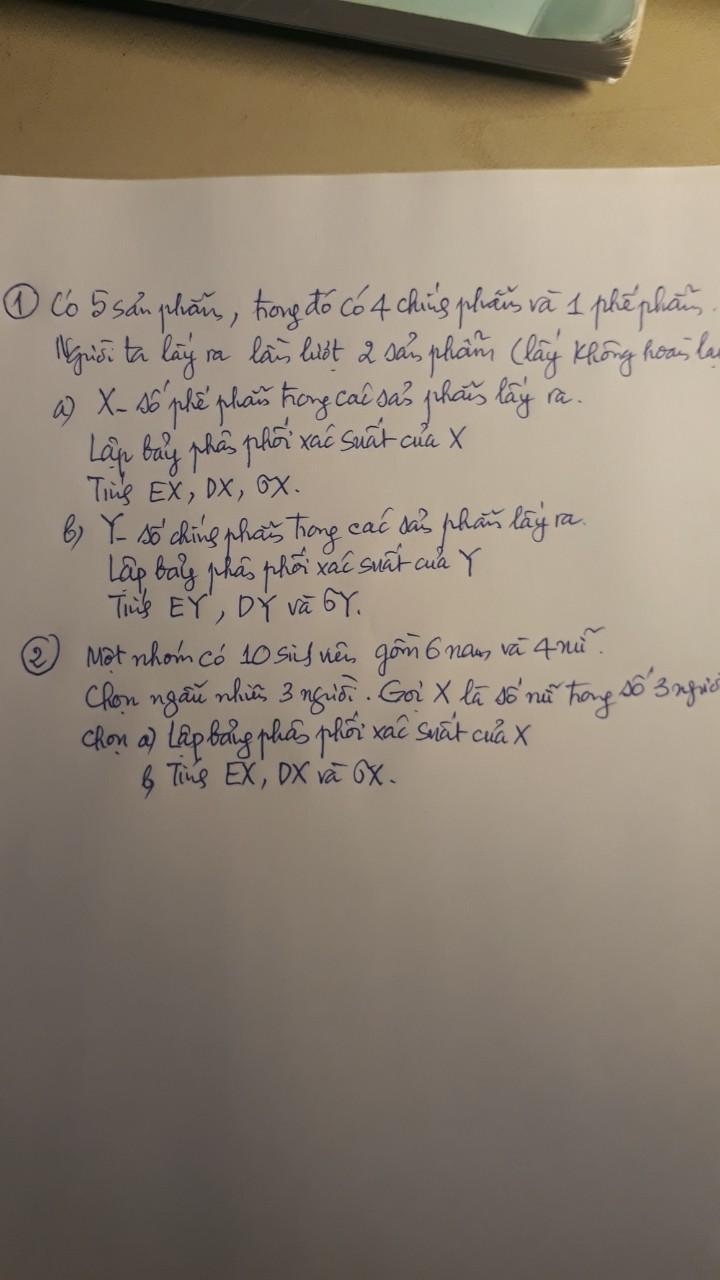 ① Có 5 sản phẩm, trong đó có 4 chính phẩm và 1 phế phẩm.
Người ta lấy ra lần lượt 2 sản phẩm (lấy không hoàn lạ
a) X - số phế phẩm trong các sản phẩm lấy ra.
Lập bảng phân phối xác suất của X
Tính EX, DX, σX.
b) Y - số chính phẩm trong các sản phẩm lấy ra.
Lập bảng phân phối xác suất của Y
Tính EY, DY và σY.
② Một nhóm có 10 sinh viên gồm 6 nam và 4 nữ.
Chọn ngẫu nhiên 3 người. Gọi X là số nữ trong số 3 ngườ
chọn a) Lập bảng phân phối xác suất của X
b, Tính EX, DX và σX.